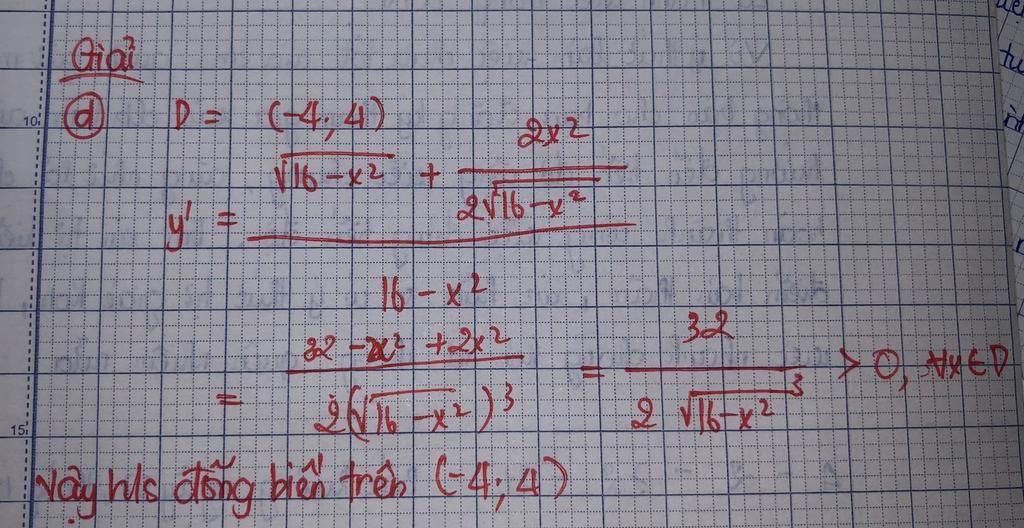 Giải
d D = (-4; 4)
y' = (√(16-x²) + 2x²/(2√(16-x²)))/(16-x²)
= (32-2x²+2x²)/(2(√(16-x²))³) = 32/(2√(16-x²)³) > 0, ∀x∈D
Vậy h/s đồng biến trên (-4; 4)
10
15